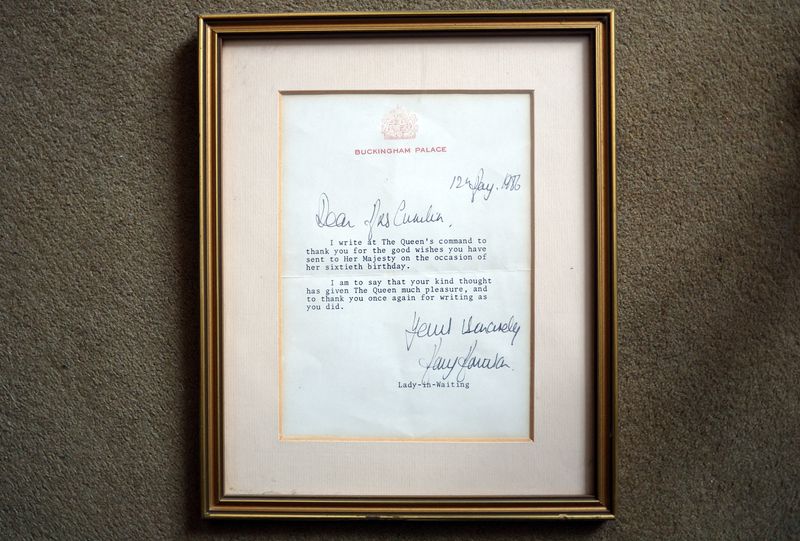 BUCKINGHAM PALACE
12th May. 1986
Dear Mrs
I write at The Queen's command to
thank you for the good wishes you have
sent to Her Majesty on the occasion of
her sixtieth birthday.
I am to say that your kind thought
has given The Queen much pleasure, and
to thank you once again for writing as
you did.
Yours sincerely
Lady-in-Waiting